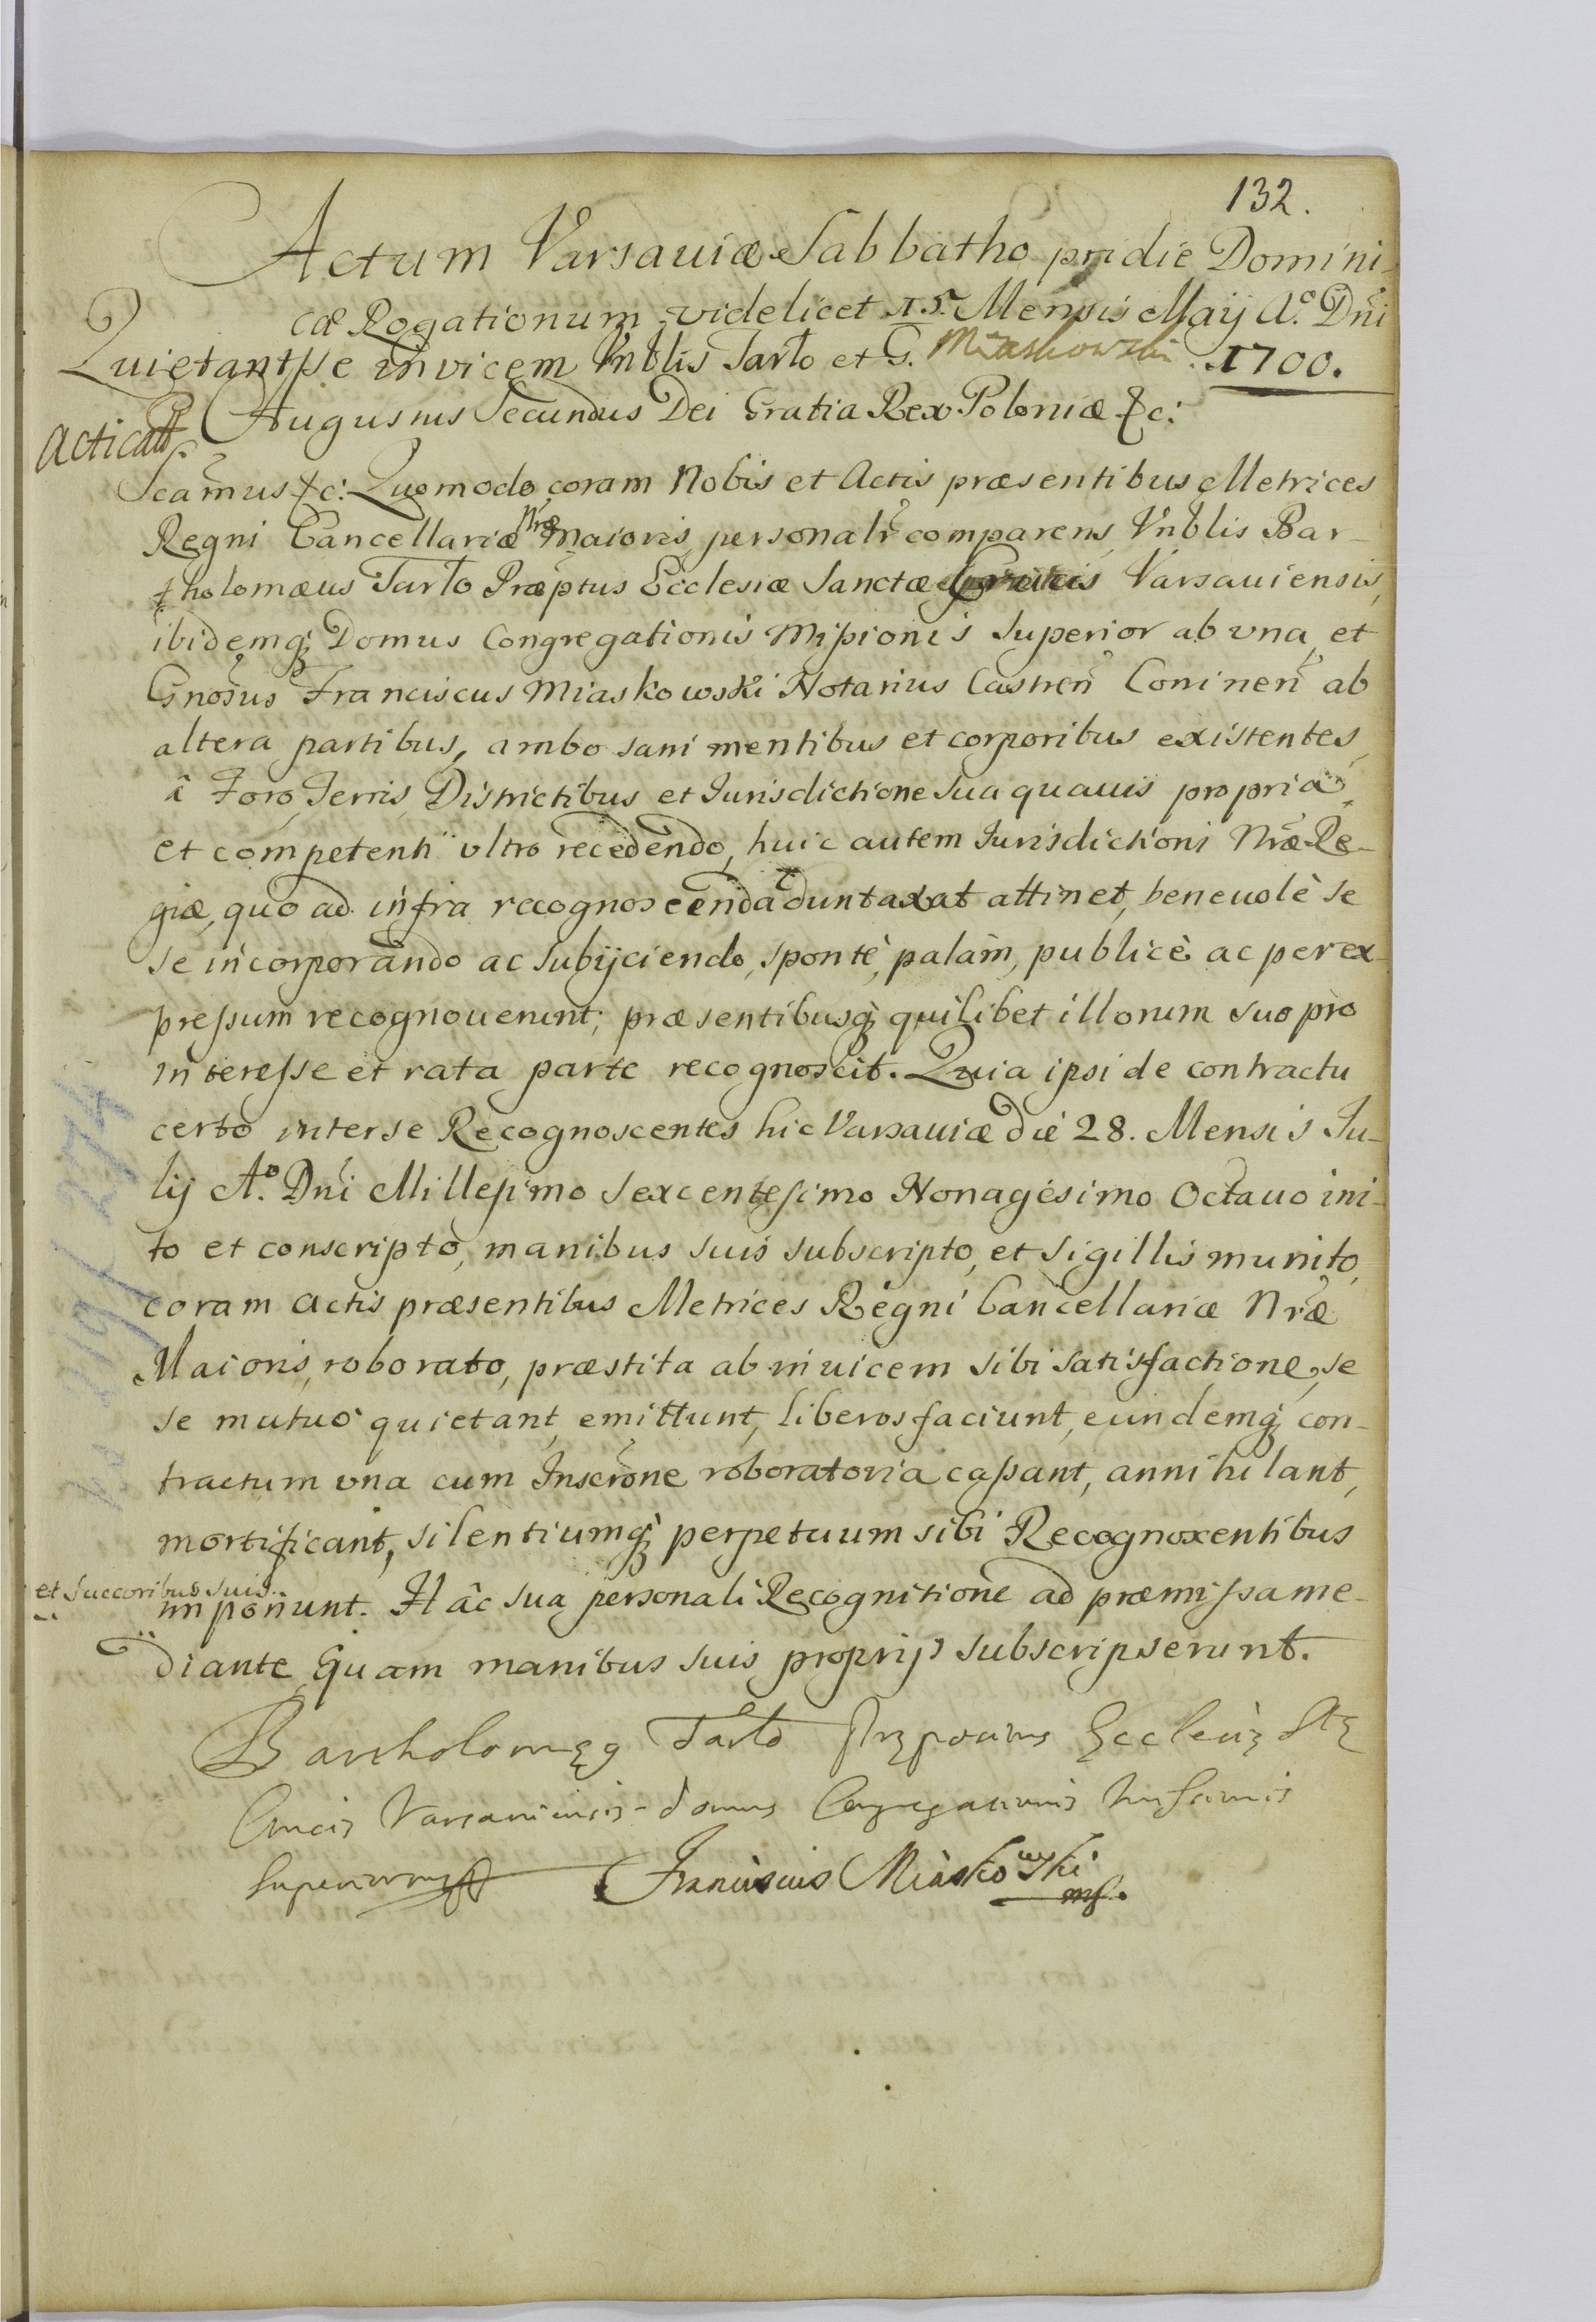 132.
Actum Varsauiæ Sabbatho pridie Domini-
cæ Rogationum videlicet 15. Mensis Maij Aº. Dni
Quietant se invicem Vnblis Tarło et G. Miaskowski 1700.
Augustus Secundus Dei Gratia Rex Poloniæ &c:
Acticatt
Scamus &c: Quomodo coram Nobis et Actis præsentibus Metrices
Regni Cancellariæ Nræ Maioris personalr comparens Vnblis Bar-
tholomæus Tarło Præptus Ecclesiæ Sanctæ Crucis Varsauiensis,
ibidemq; Domus Congregationis Missionis Superior ab vna, et
Gnosus Franciscus Miaskowski Notarius Castren Coninen ab
altera partibus, ambo sani mentibus et corporibus existentes
â Foro, Terris, Districtibus et Iurisdictione sua quauis propria
et competenti vltro recedendo, huic autem Iurisdictioni Nræ Re-
giæ, quo ad infra recognoscenda duntaxat attinet, beneuolè se
se incorporando ac subijciendo, spontè, palàm, publicè ac per ex-
pressum recognouerunt; præsentibusq; quilibet illorum suo pro
interesse et rata parte recognoscit. Quia ipsi de contractu
certo inter se Recognoscentes hic Varsauiæ die 28. Mensis Iu-
lij Aº. Dni Millesimo Sexcentesimo Nonagesimo Octauo ini-
to et conscripto, manibus suis subscripto, et sigillis munito,
coram actis præsentibus Metrices Regni Cancellariæ Nræ
Maioris, roborato, præstita ab inuicem sibi satisfactione, se
se mutuò quietant, emittunt, liberos faciunt, eundemq; con-
tractum vna cum Inscrone roboratoria cassant, annihilant,
mortificant, silentiumq; perpetuum sibi Recognoxentibus
et Succoribus suis
imponunt. Hâc sua personali Recognitione ad præmissa me-
diante, Quam manibus suis proprijs subscripserunt.
Bartholomęg Tarło Pręposius Ecclesię Stę
Crucis Varsauiensis domus Congregationis Missionis
Superior mp
Franciscus Miaskowski
mp.